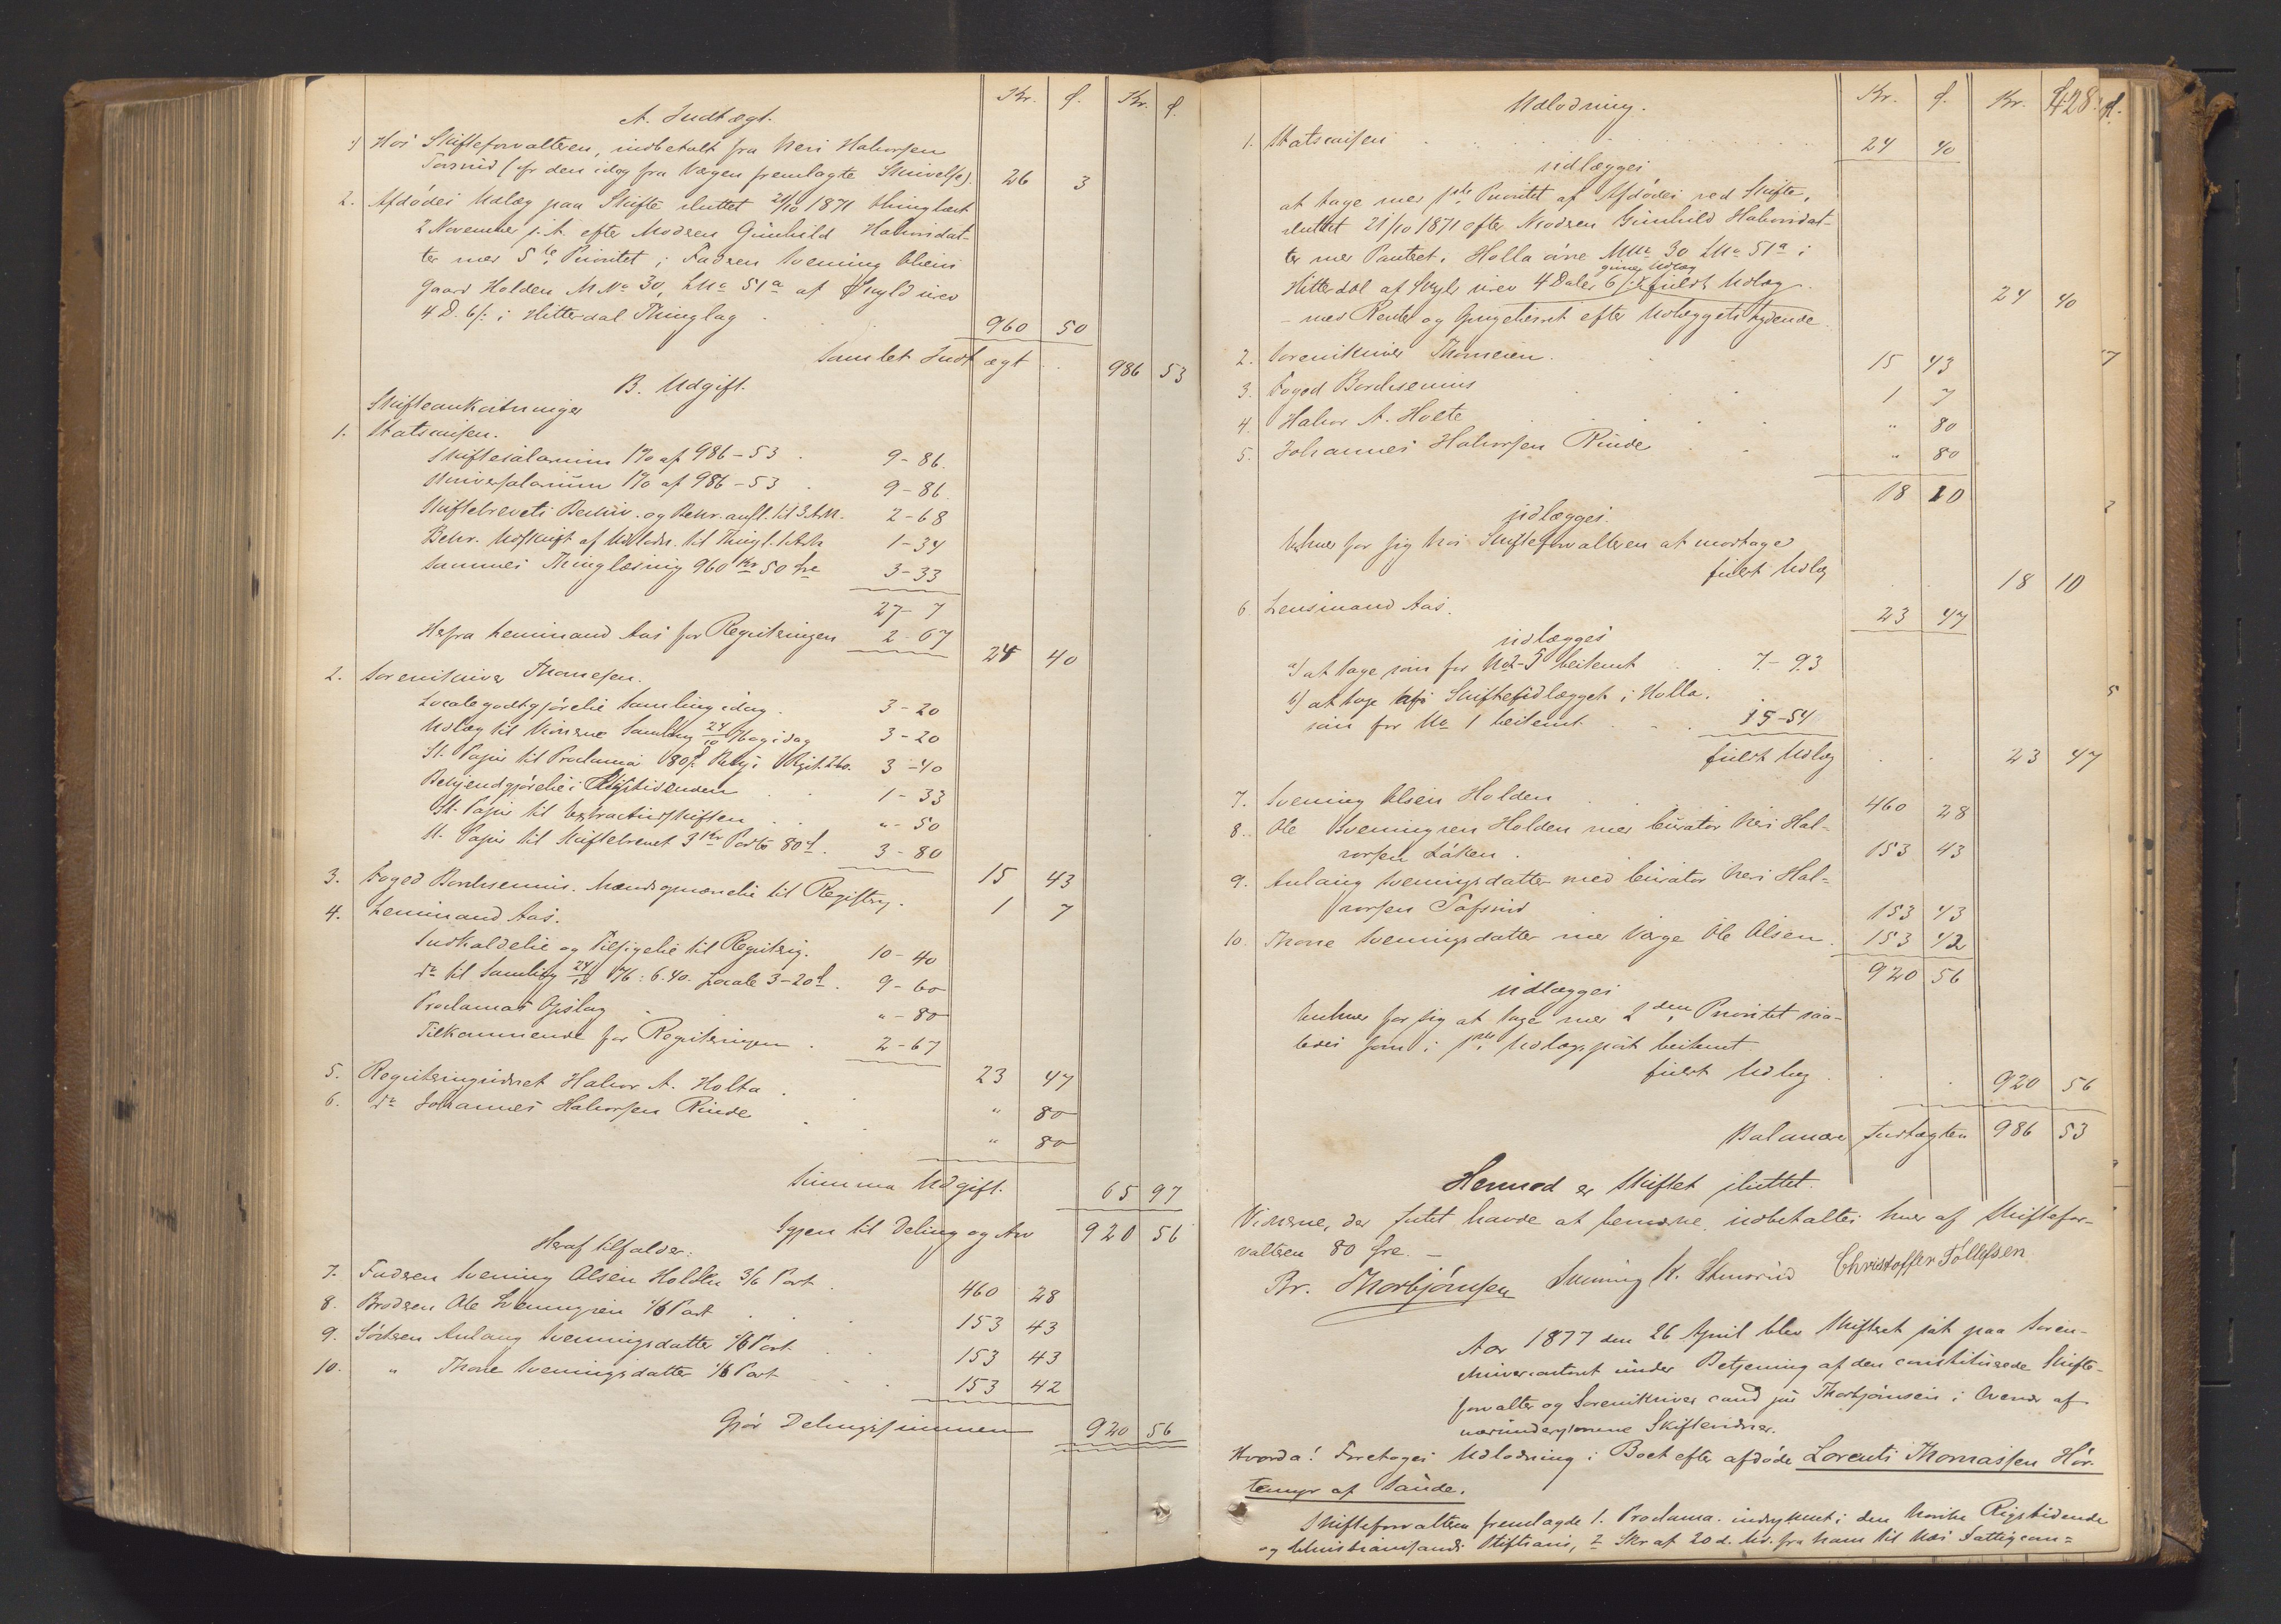 A. Indtægt. Kr. ø. Kr. ø.
1) Hos Skifteforvalteren, indbetalt fra Neri Halvorsen
Tovsrud (cfr den idag fra Værgen fremlagte Skrivelse). 26 3
2. Afdødes Udlæg paa Skifte sluttet 21/10 1871 thinglæst
2 November s. A. efter Moderen Gunhild Halvorsdat-
ter med 5te Prioritet i Faderen Svenning Olsens
Gaard Holden M No 30, L No 51a af Skyld urev
4 D. 6 s: i Hitterdal Thinglag 960 50
Samlet Indtægt 986 53
B. Udgift.
Skifteomkostninger
1. Statscassen.
Skiftesalarium 1% af 986-53 9-86
Skriversalarium 1% af 986-53 9-86
Skiftebrevets Beskriv. og Bekr. 2-68
Bekr. Udskrift af Udlodn. til Thingl. 1-34
Sammes Thinglæsning 960 Kr 50 Øre 3-33
27-7
Herfra Lensmand Aas for Registeringen 2-67 24 40
2. Sorenskriver Thomesen.
Localegodtgjørelse Samling idag 3-20
Udlæg til Vidnerne Samling 24/10 76 og idag 3-20
St. Papir til Proclama 80 s. 3-40
Bekjendtgjørelse i Stiftstidenden 1-33
St. Papir til Extractudskriften " - 50
St. Papir til Skiftebrevet 3 Kr Porto 80 ø. 3-80 15 43
3. Foged Borchsenius. Mandsopnævnelse til Registrg. 1 7
4. Lensmand Aas.
Indkaldelse og Tilsigelse til Registrg. 10-40
do til Samling 24/10 76: 6.40. Locale 3-20 ø. 9-60
Proclamas Opslag " - 80
Tilkommende for Registeringen 2-67 23 47
5. Registeringsvidnet Halvor A. Holta " 80
6. do Johannes Halvorsen Rinde " 80
Summa Udgift. 65 97
Igjen til Deling og Arv 920 56
Heraf tilfalder:
7. Faderen Svening Olsen Holden 3/6 Part 460 28
8. Broderen Ole Sveningsen 1/6 Part 153 43
9. Søsteren Anlaug Sveningsdatter 1/6 Part 153 43
10. " Thone Sveningsdatter 1/6 Part 153 42
Gjør Delingssummen 920 56
428.
Udlodning. Kr. ø. Kr. ø.
1. Statscassen 24 40
udlægges
at tage med 1ste Prioritet af Afdødes ved Skifte,
sluttet 21/10 1871 efter Moderen Gunhild Halvorsdat-
ter med Panteret i Holla øvre MNo 30 LNo 51a i
Hitterdal af Skyld urev 4 Daler 6 s: fuldt Udlæg 24 40
givne Udlæg
- med Renter og Opsigelsesret efter Udlæggets Lydende
2. Sorenskriver Thomesen. 15 43
3. Foged Borchsenius 1 7
4. Halvor A. Holte " 80
5. Johannes Halvorsen Rinde " 80
18 10
udlægges.
Enhver for sig hos Skifteforvalteren at modtage
fuldt Udlæg 18 10
6. Lensmand Aas. 23 47
udlægges
a) at tage som for No 2-5 bestemt 7-93
b) at tage af Skifteudlægget i Holla,
som for No 1 bestemt 15-54
fuldt Udlæg 23 47
7. Svening Olsen Holden 460 28
8. Ole Sveningsen Holden med Curator Neri Hal-
vorsen 153 43
9. Anlaug Sveningsdatter med Curator Neri Hal-
vorsen Tofsrud 153 43
10. Thone Sveningsdatter med Værge Ole Olsen. 153 42
920 56
udlægges
Enhver for sig at tage med 2den Prioritet saa-
ledes som i 1ste Udlægspost bestemt
fuldt Udlæg 920 56
Balancere Indtægten 986 53
Hermed er Skiftet sluttet.
Vidnerne, der Intet havde at bemærke, udbetaltes hver af Skiftefor-
valteren 80 Øre. -
Br. Thorbjørnsen Svening Christoffer Tollefsen
Aar 1877 den 26 April blev Skifteret sat paa Soren-
skrivercontoret under Betjening af den constituerede Skifte-
forvalter og Sorenskriver cand jur Thorbjørnsen i Overvær af
nærunderskrevne Skiftevidner.
Hvorda! Foretoges Udlodning i Boet efter afdøde Lorents Thomassen Hør-
temyr af Saude.
Skifteforvalteren fremlagde 1. Proclama indrykket i den Norske Rigstidende
og Christianssands Stiftsavis, 2 Skr af 20 d. Md. fra ham til Næs Fattigcom=